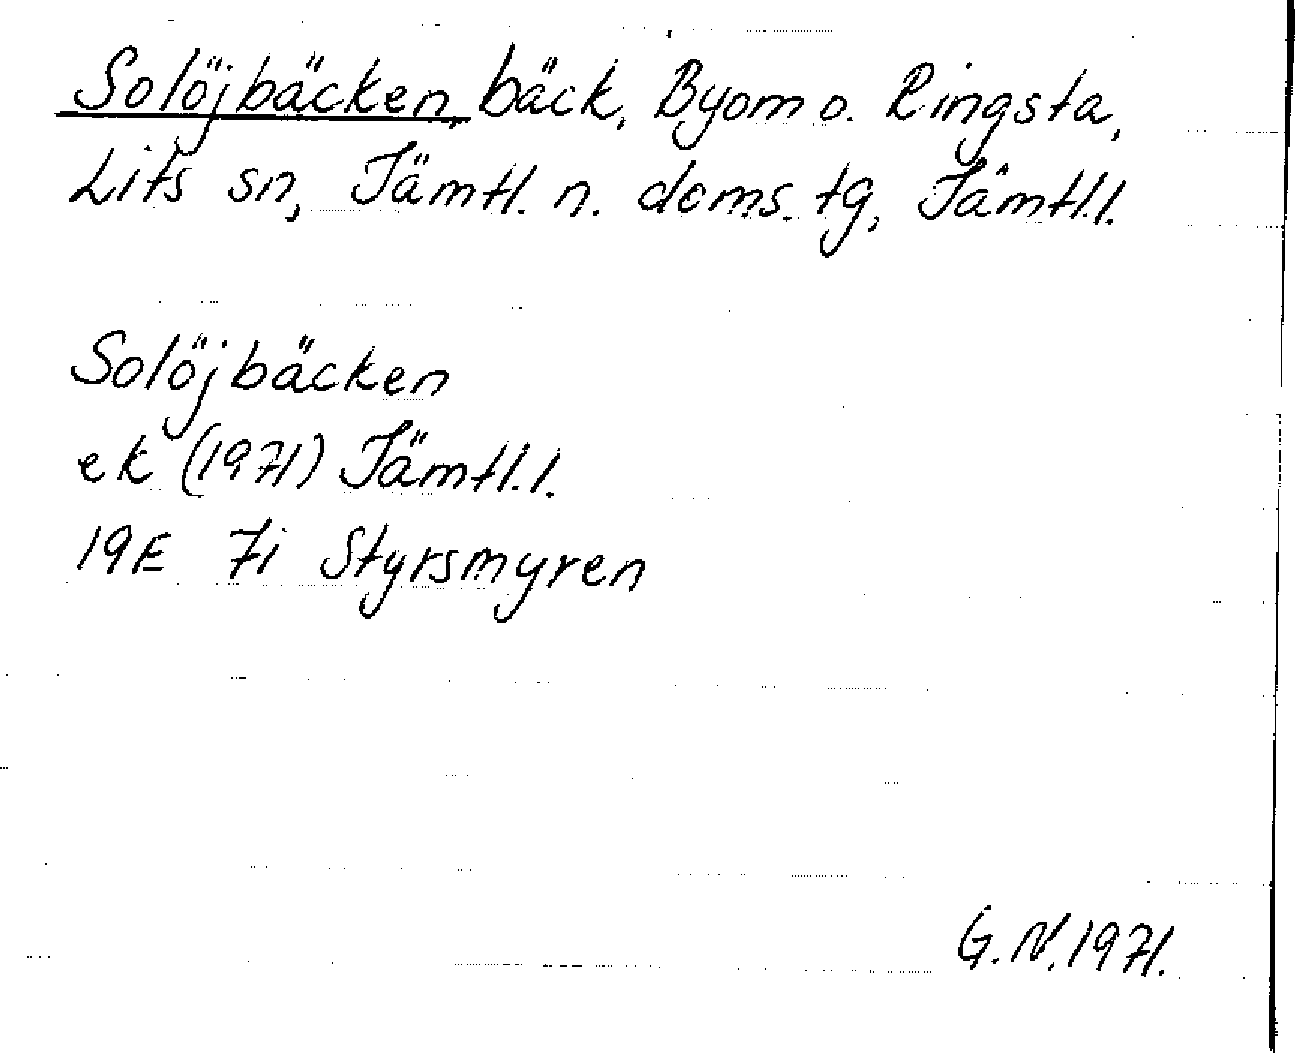 Solöjbäcken, bäck, Byom o. Ringsta,
Lits sn, Jämtl. n. doms. tg, Jämtl.l.
Solöjbäcken
ek (1971) Jämtl.l.
19E 7i Styrsmyren
G.N.1971.